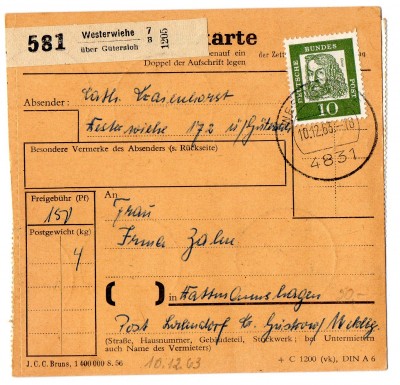 581 Westerwiehe 7 B 1205
über Gütersloh
karte
Doppel der Aufschrift legen
DEUTSCHE BUNDES POST
10
10.12.63
4831
Absender:
Westerwiehe 172 ü/Gütersloh
Besondere Vermerke des Absenders (s. Rückseite)
Freigebühr (Pf)
150
Postgewicht (kg)
4
An
Frau
Irma Zahn
in Hattmannshagen
Post Lohndorf b. Güstrow/Mecklbg.
(Straße, Hausnummer, Gebäudeteil, Stockwerk; bei Untermietern
auch Name des Vermieters)
J. C. C. Bruns, 1 400 000 8. 56
10.12.63
4 C 1200 (vk), DIN A 6